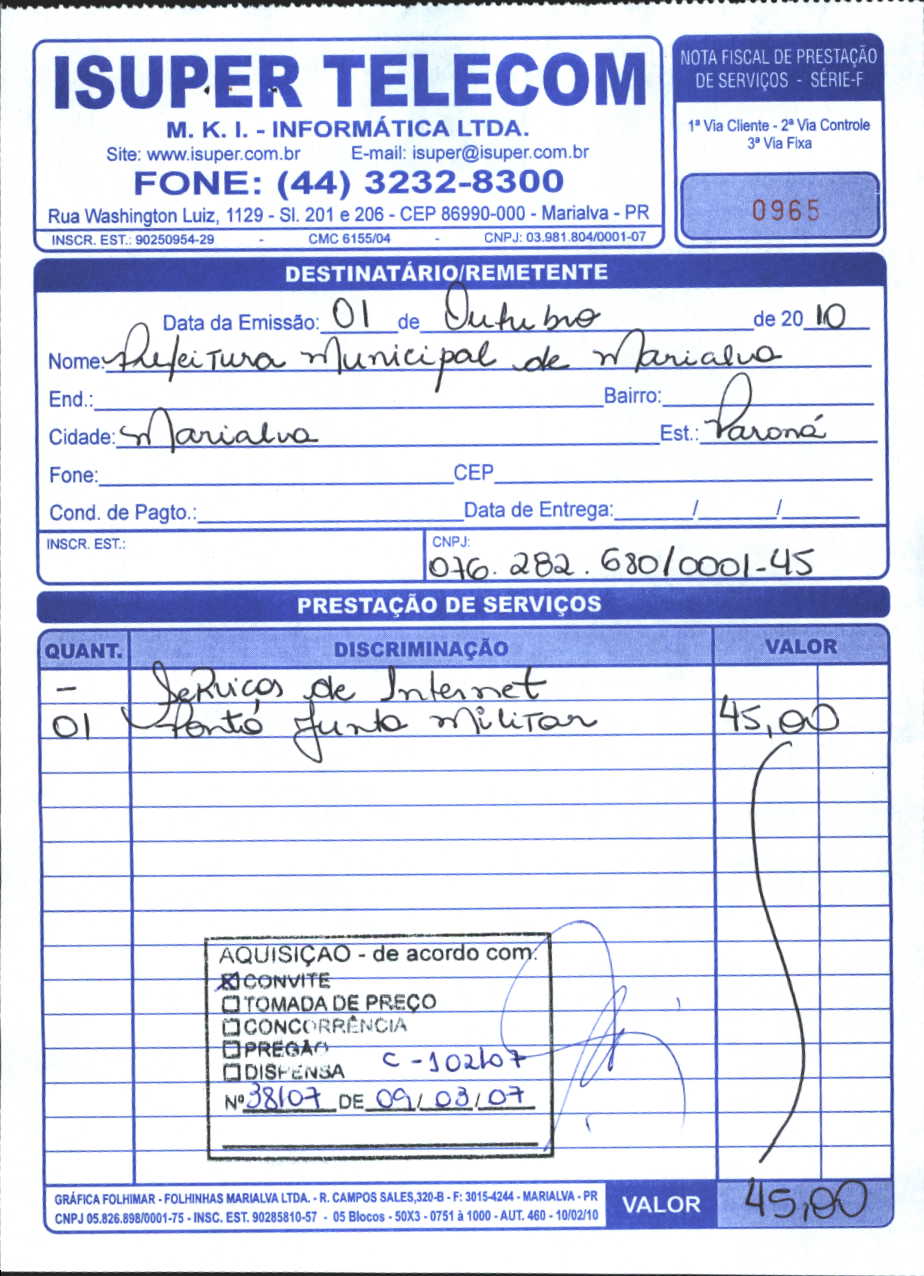 ISUPER TELECOM
M. K. I. - INFORMÁTICA LTDA.
Site: www.isuper.com.br E-mail: isuper@isuper.com.br
FONE: (44) 3232-8300
Rua Washington Luiz, 1129 - Sl. 201 e 206 - CEP 86990-000 - Marialva - PR
INSCR. EST.: 90250954-29 - CMC 6155/04 - CNPJ: 03.981.804/0001-07
NOTA FISCAL DE PRESTAÇÃO
DE SERVIÇOS - SÉRIE-F
1ª Via Cliente - 2ª Via Controle
3ª Via Fixa
0965
DESTINATÁRIO/REMETENTE
Data da Emissão: 01 de Outubro de 2010
Nome: Prefeitura Municipal de Marialva
End.: Bairro:
Cidade: Marialva Est.: Paraná
Fone: CEP
Cond. de Pagto.: Data de Entrega: / /
INSCR. EST.: CNPJ:
076.282.680/0001-45
PRESTAÇÃO DE SERVIÇOS
QUANT. DISCRIMINAÇÃO VALOR
- Serviços de Internet
01 Ponto Junta Militar 45,00
AQUISIÇAO - de acordo com:
CONVITE
TOMADA DE PREÇO
CONCORRÊNCIA
PREGÃO
DISPENSA C-102/07
Nº 38/07 DE 09/03/07
GRÁFICA FOLHIMAR - FOLHINHAS MARIALVA LTDA. - R. CAMPOS SALES,320-B - F: 3015-4244 - MARIALVA - PR
CNPJ 05.826.898/0001-75 - INSC. EST. 90285810-57 - 05 Blocos - 50X3 - 0751 à 1000 - AUT. 460 - 10/02/10
VALOR 45,00